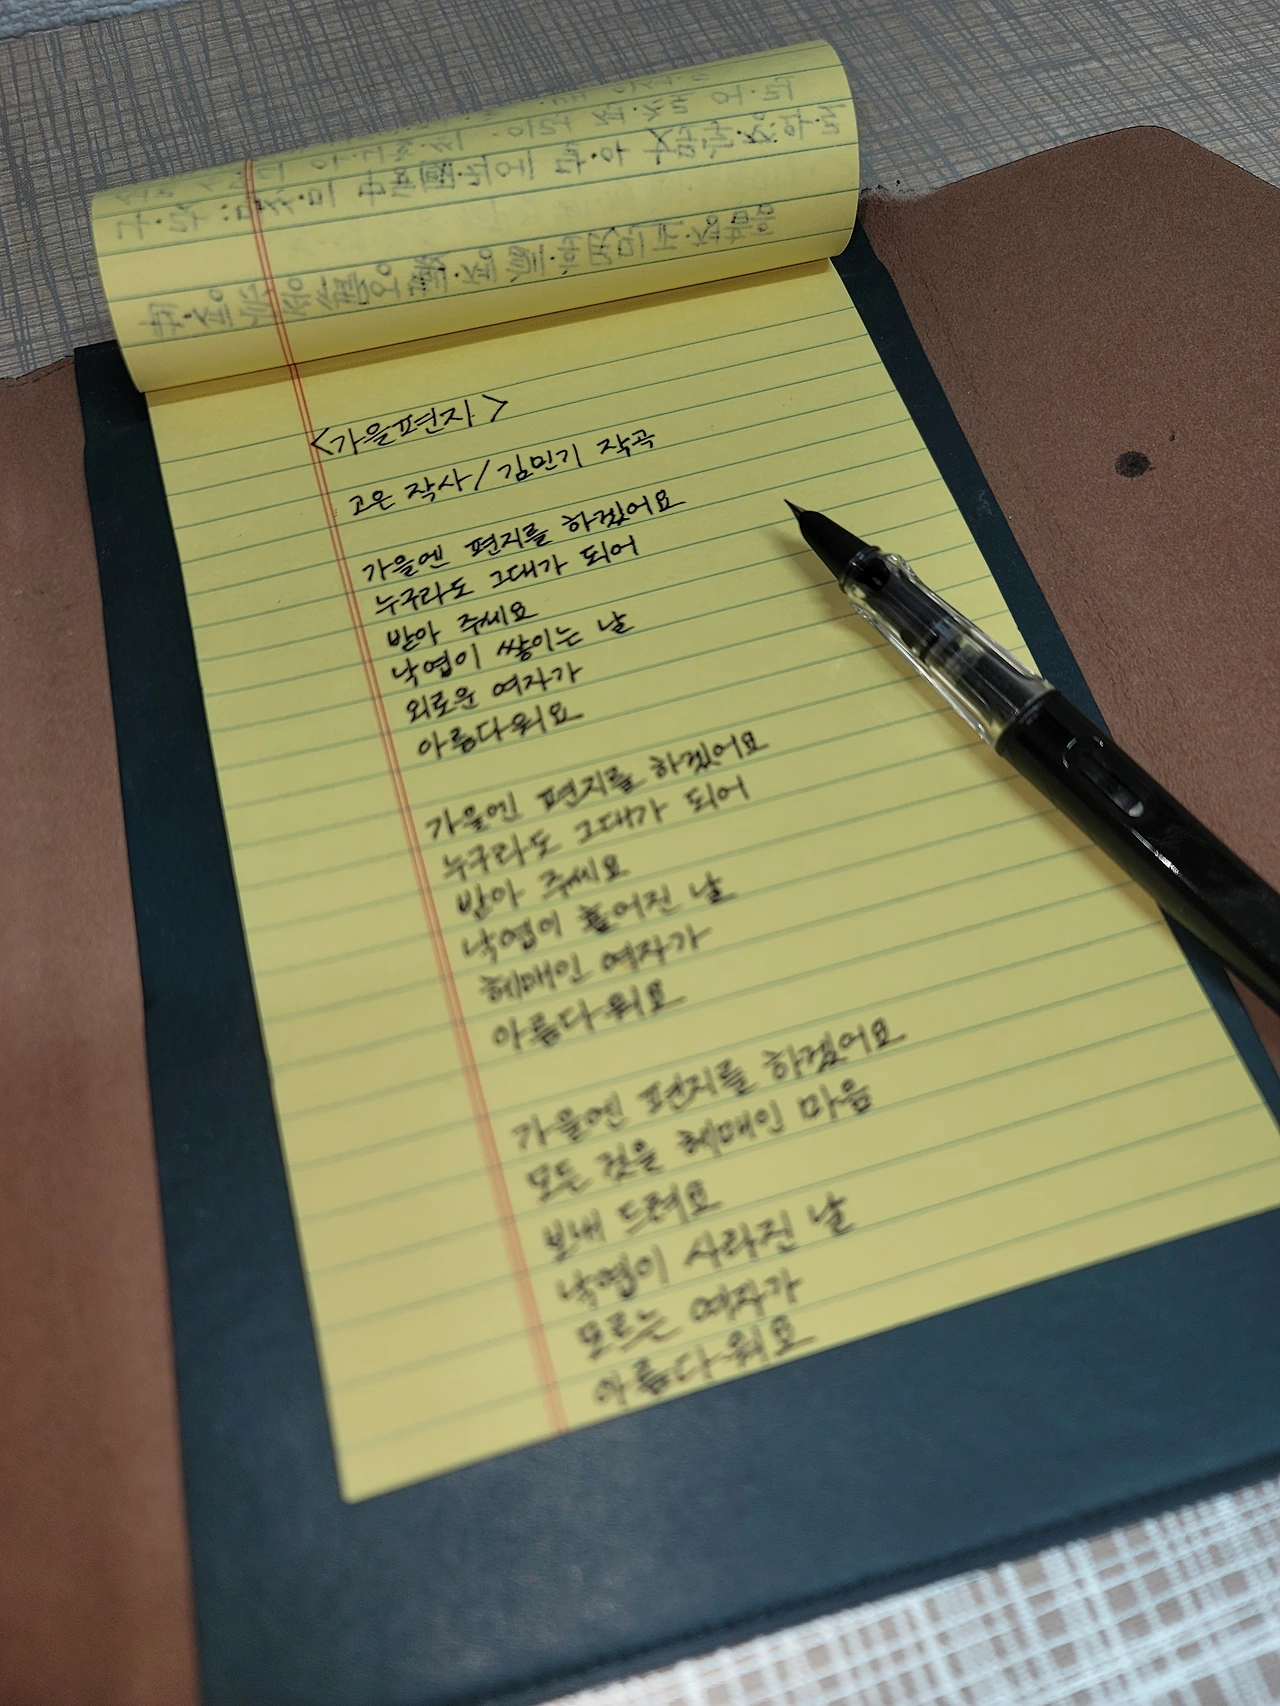 <가을편지>
고은 작사/김민기 작곡
가을엔 편지를 하겠어요
누구라도 그대가 되어
받아 주세요
낙엽이 쌓이는 날
외로운 여자가
아름다워요
가을엔 편지를 하겠어요
누구라도 그대가 되어
받아 주세요
낙엽이 흩어진 날
헤매인 여자가
아름다워요
가을엔 편지를 하겠어요
모든 것을 헤매인 마음
보내 드려요
낙엽이 사라진 날
모르는 여자가
아름다워요